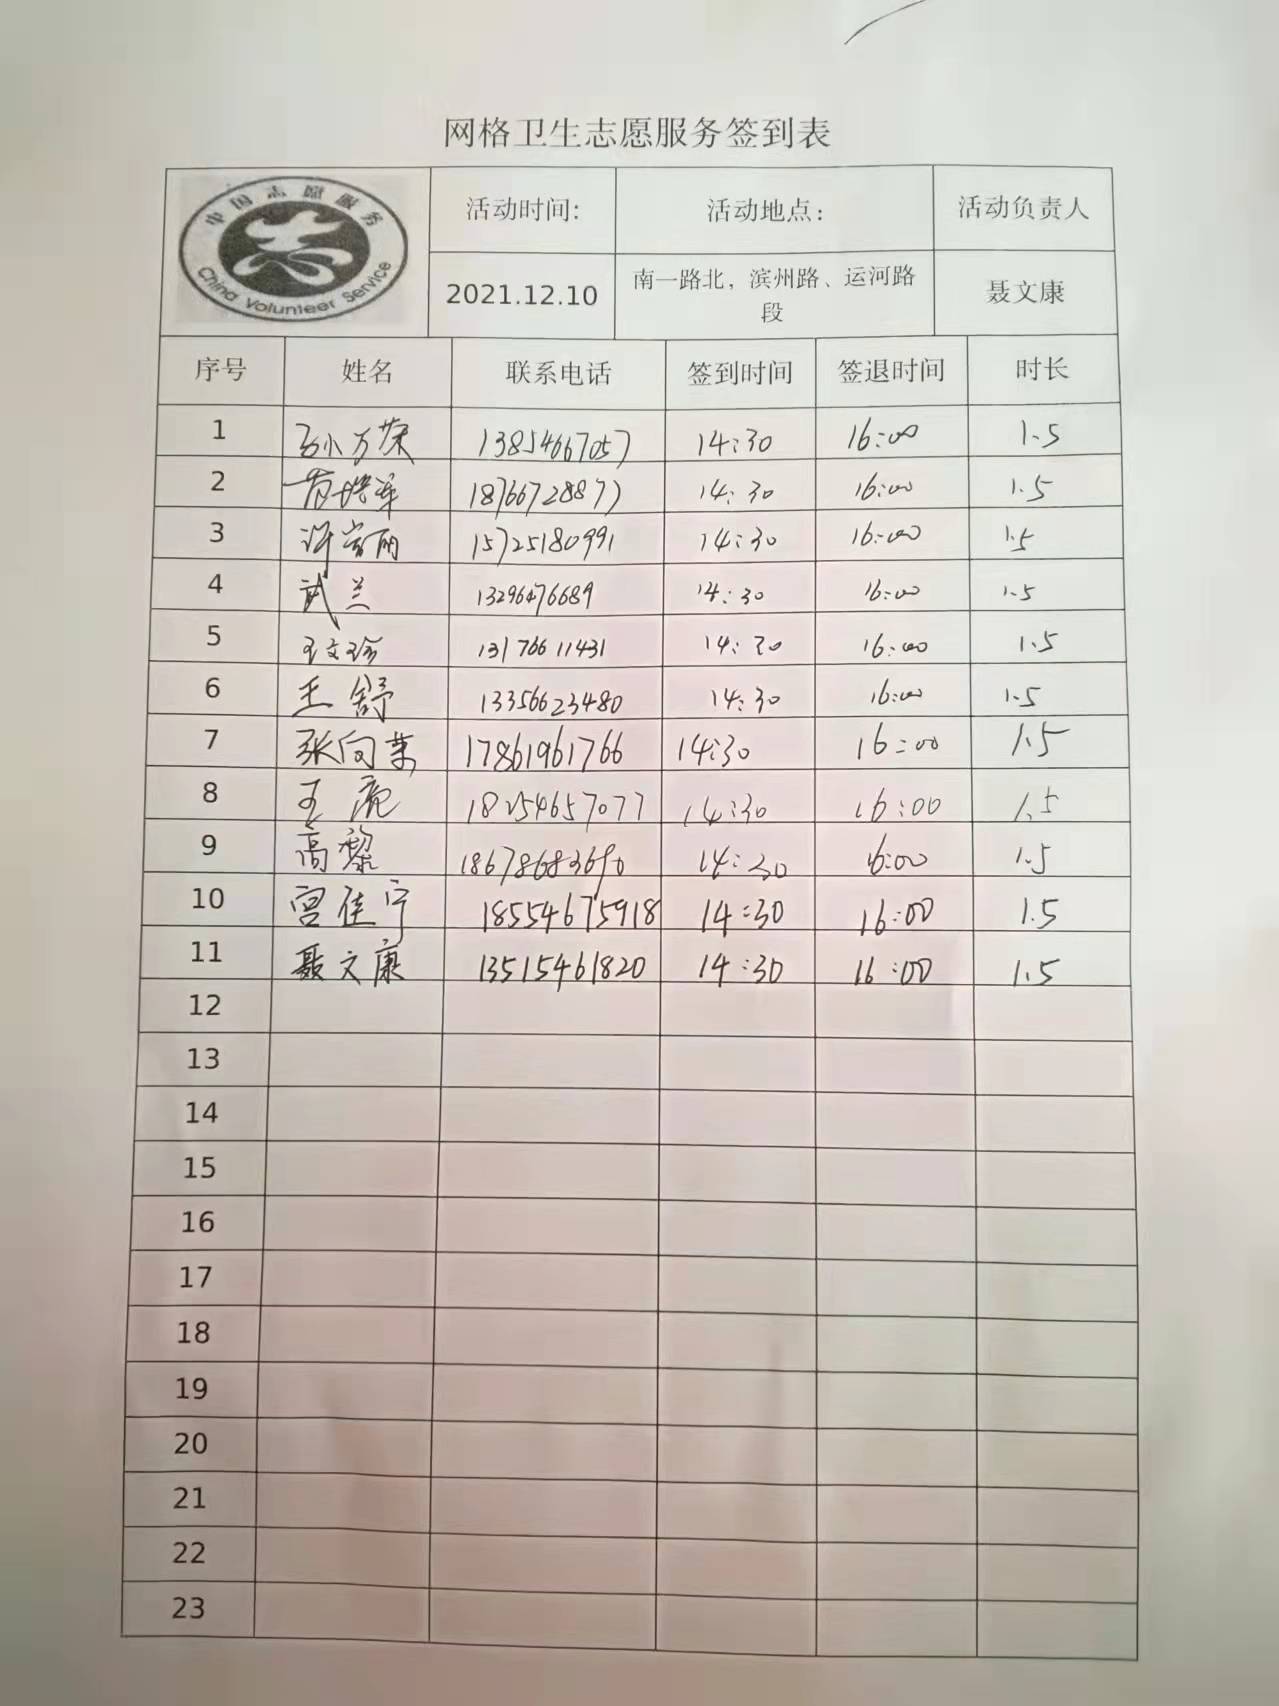 网格卫生志愿服务签到表
中国志愿服务
China Volunteer Service
活动时间: 活动地点: 活动负责人
2021.12.10 南一路北，滨州路、运河路段 聂文康
序号 姓名 联系电话 签到时间 签退时间 时长
1 孙万荣 13854667057 14:30 16:00 1.5
2 18766728877 14:30 16:00 1.5
3 许富丽 15725180991 14:30 16:00 1.5
4 武兰 13296476689 14:30 16:00 1.5
5 王文珍 13176611431 14:30 16:00 1.5
6 王舒 13356623480 14:30 16:00 1.5
7 张向荣 17861961766 14:30 16:00 1.5
8 18254657077 14:30 16:00 1.5
9 高黎 18678683690 14:30 16:00 1.5
10 宫佳宁 18554675918 14:30 16:00 1.5
11 聂文康 13515461820 14:30 16:00 1.5
12
13
14
15
16
17
18
19
20
21
22
23